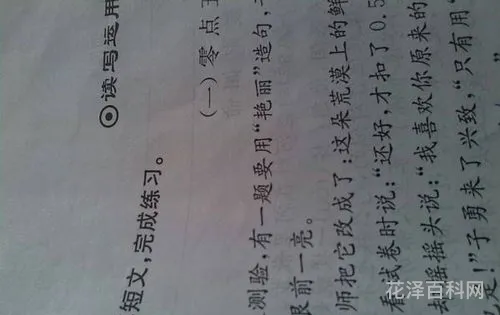 ◎读写运用
短文，完成练习。
（一）零点
测验，有一题要用“艳丽”造句，
眼前一亮。
师把它改成了：这朵荒漠上的鲜
看试卷时说：“还好，才扣了0.5
却摇摇头说：“我喜欢你原来的
定！”子勇来了兴致，“只有用“
花泽百科网